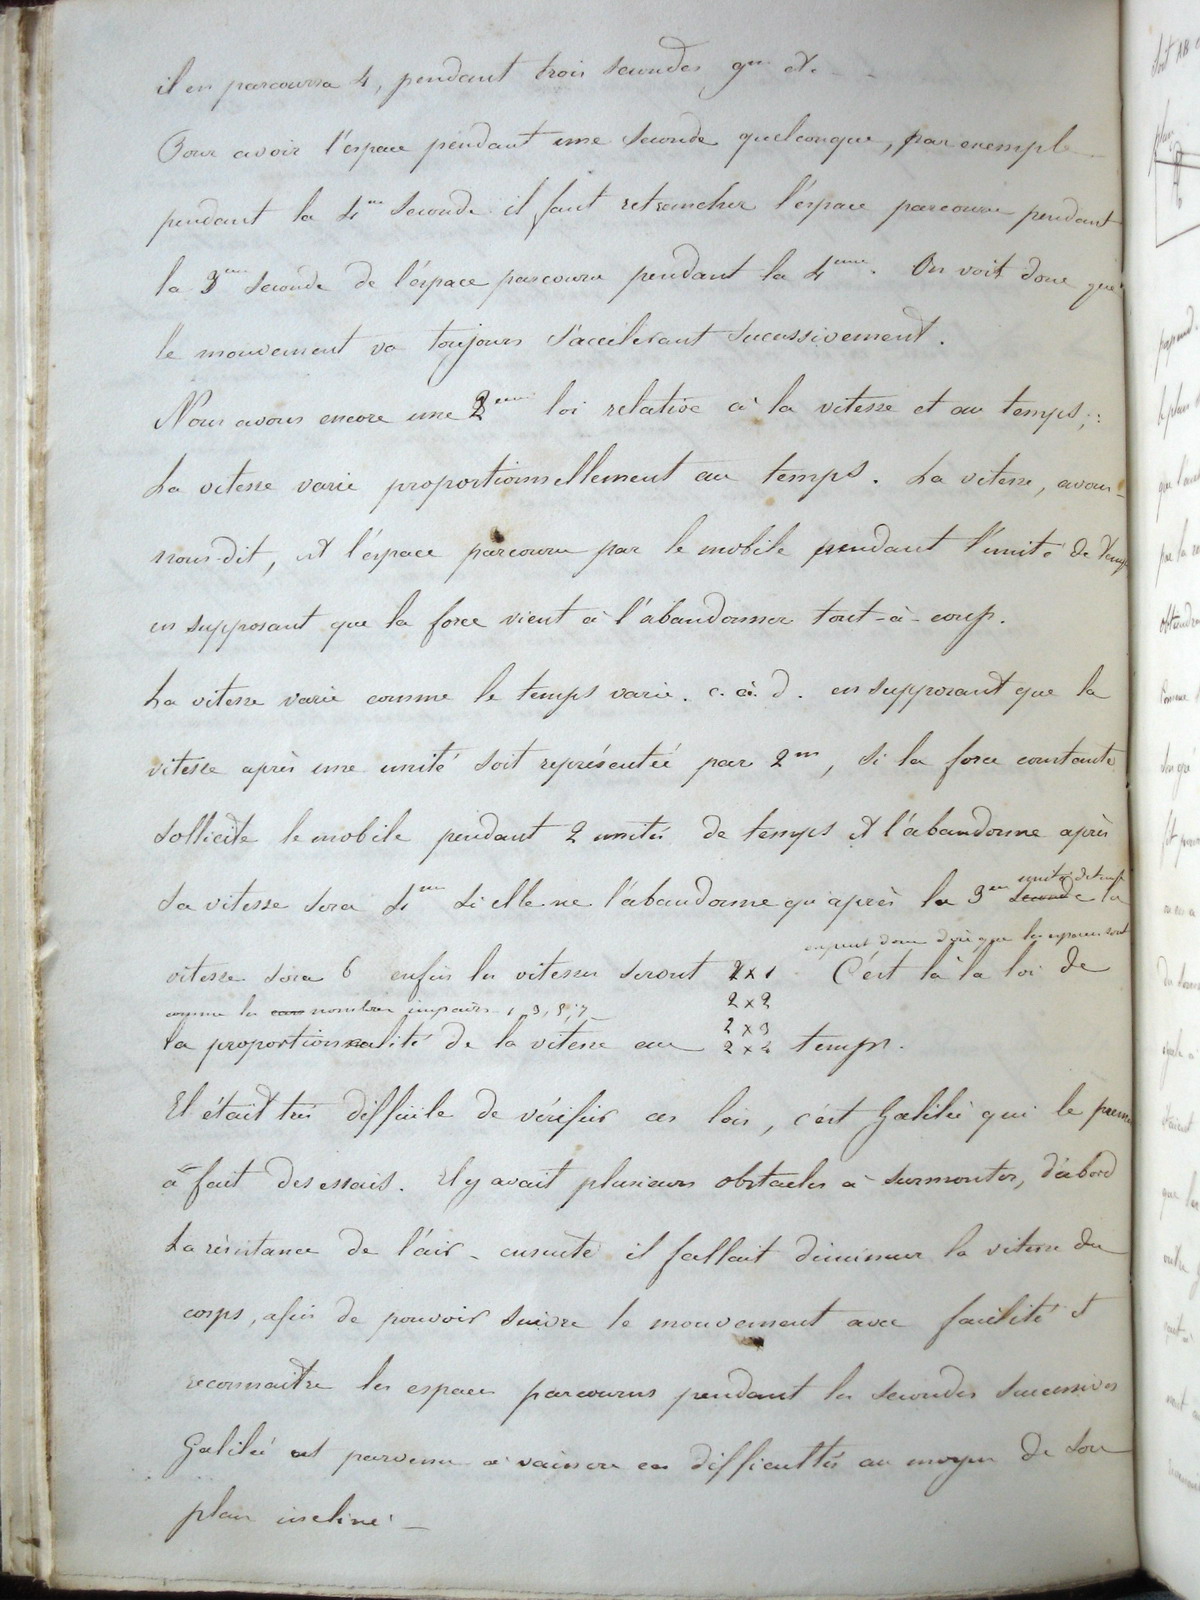 il en parcourra 4, pendant trois secondes 9m etc.
Pour avoir l'espace pendant une seconde quelconque, par exemple
pendant la 4me seconde il faut retrancher l'espace parcouru pendant
la 3eme seconde de l'espace parcouru pendant la 4eme. On voit donc que
le mouvement va toujours s'accélerant sucessivement.
Nous avons encore une 2eme loi relative à la vitesse et au temps;:
La vitesse varie proportionnellement au temps. La vitesse, avons-
nous-dit, est l'espace parcouru par le mobile pendant l'unité de temps
en supposant que la force vient à l'abandonner tout-à-coup.
La vitesse varie comme le temps varie. c. à. d. en supposant que la
vitesse après une unité soit représentée par 2m, si la force constante
sollicite le mobile pendant 2 unités de temps et l'abandonne après
sa vitesse sera 4m si elle ne l'abandonne qu'après la 3me seconde la
unité de temps
vitesse sera 6 enfin les vitesses seront 2x1 C'est là la loi de
on peut donc dire que les espaces sont
2x2
comme les nombres impairs 1, 3, 5, 7
2x3
la proportionnalité de la vitesse au 2x4 temps.
Il était très difficile de vérifier ces lois, c'est Galilée qui le premier
a fait des essais. Il y avait plusieurs obstacles à surmonter, d'abord
La résistance de l'air - ensuite il fallait diminuer la vitesse du
corps, afin de pouvoir suivre le mouvement avec facilité et
reconnaitre les espaces parcourus pendant les secondes successives
Galilée est parvenu à vaincre ces difficultés au moyen de son
plan incliné -